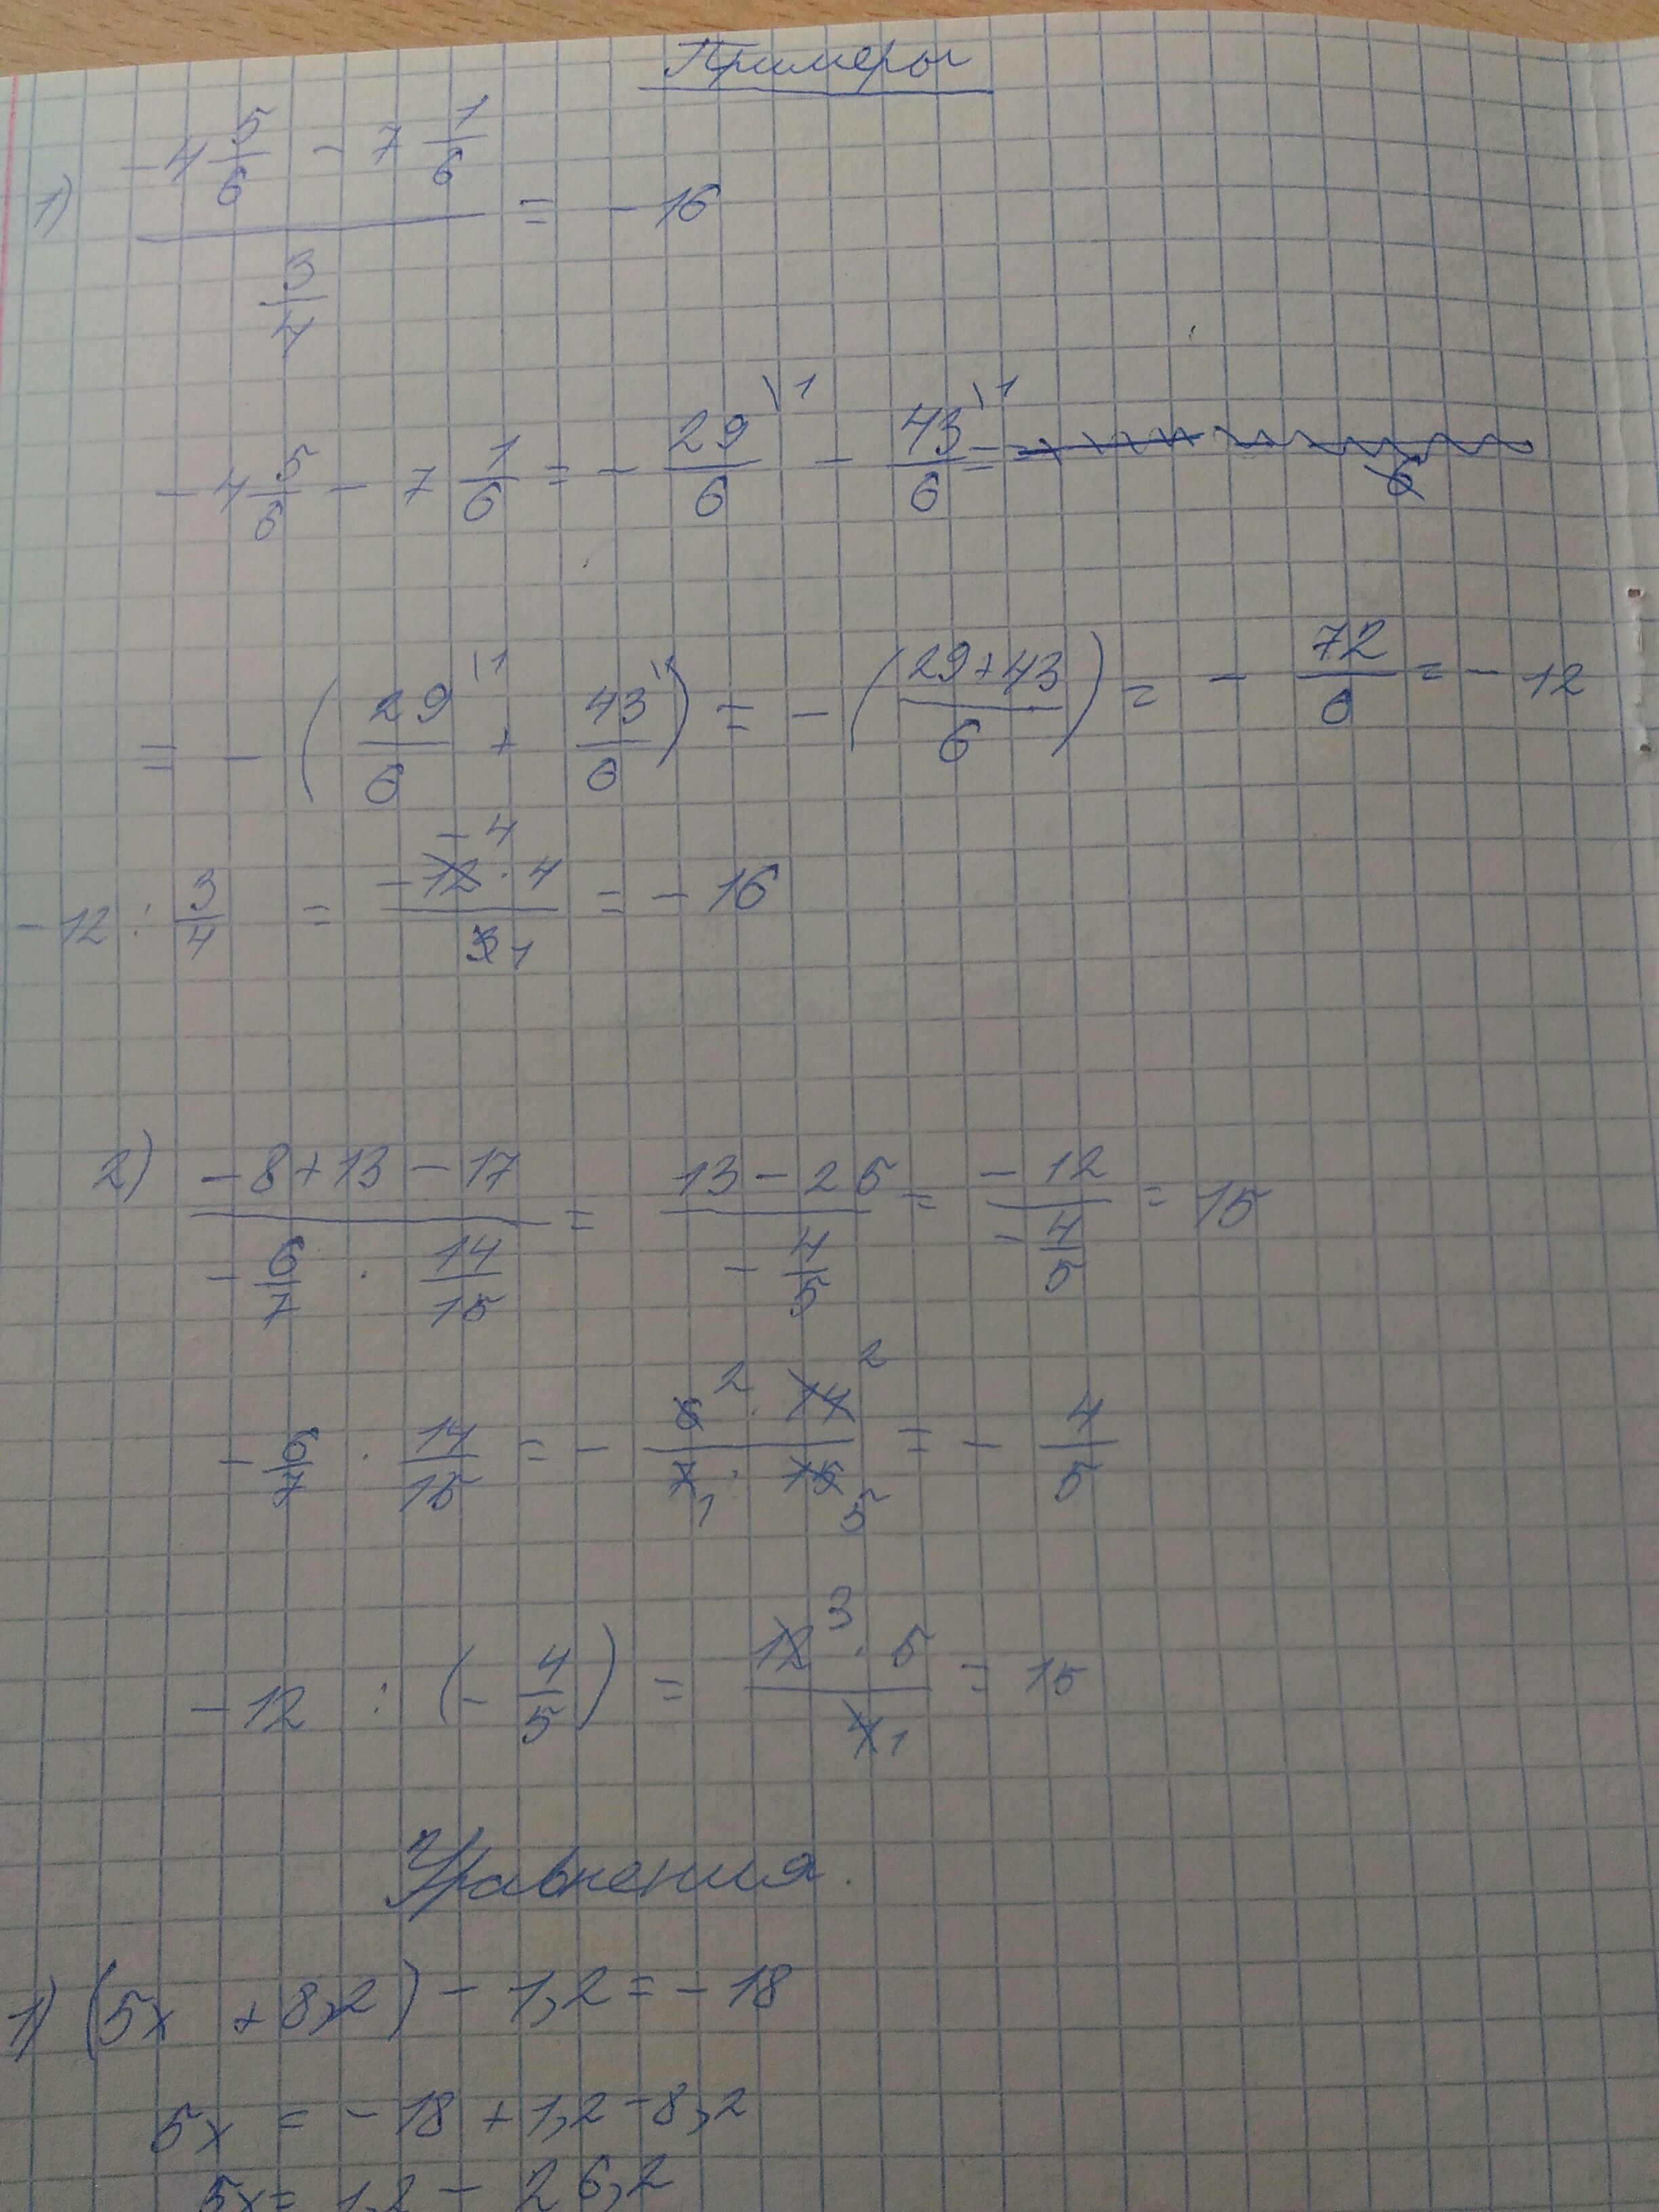 Примеры
1) (-4 5/6 - 7 1/6) / (3/4) = -16
-4 5/6 - 7 1/6 = - 29\1/6 - 43\1/6 =
= - (29\1/6 + 43\1/6) = - ((29+43)/6) = - 72/6 = - 12
-12 : 3/4 = (-12 -4 · 4)/(3 1) = -16
2) (-8+13-17) / (-6/7 · 14/15) = (13-25) / (-4/5) = (-12) / (-4/5) = 15
-6/7 · 14/15 = - (6 2 · 14 2)/(7 1 · 15 5) = - 4/5
-12 : (-4/5) = (12 3 · 5)/(4 1) = 15
Уравнения.
1) (5x + 8,2) - 1,2 = -18
5x = -18 + 1,2 - 8,2
5x = 1,2 - 26,2